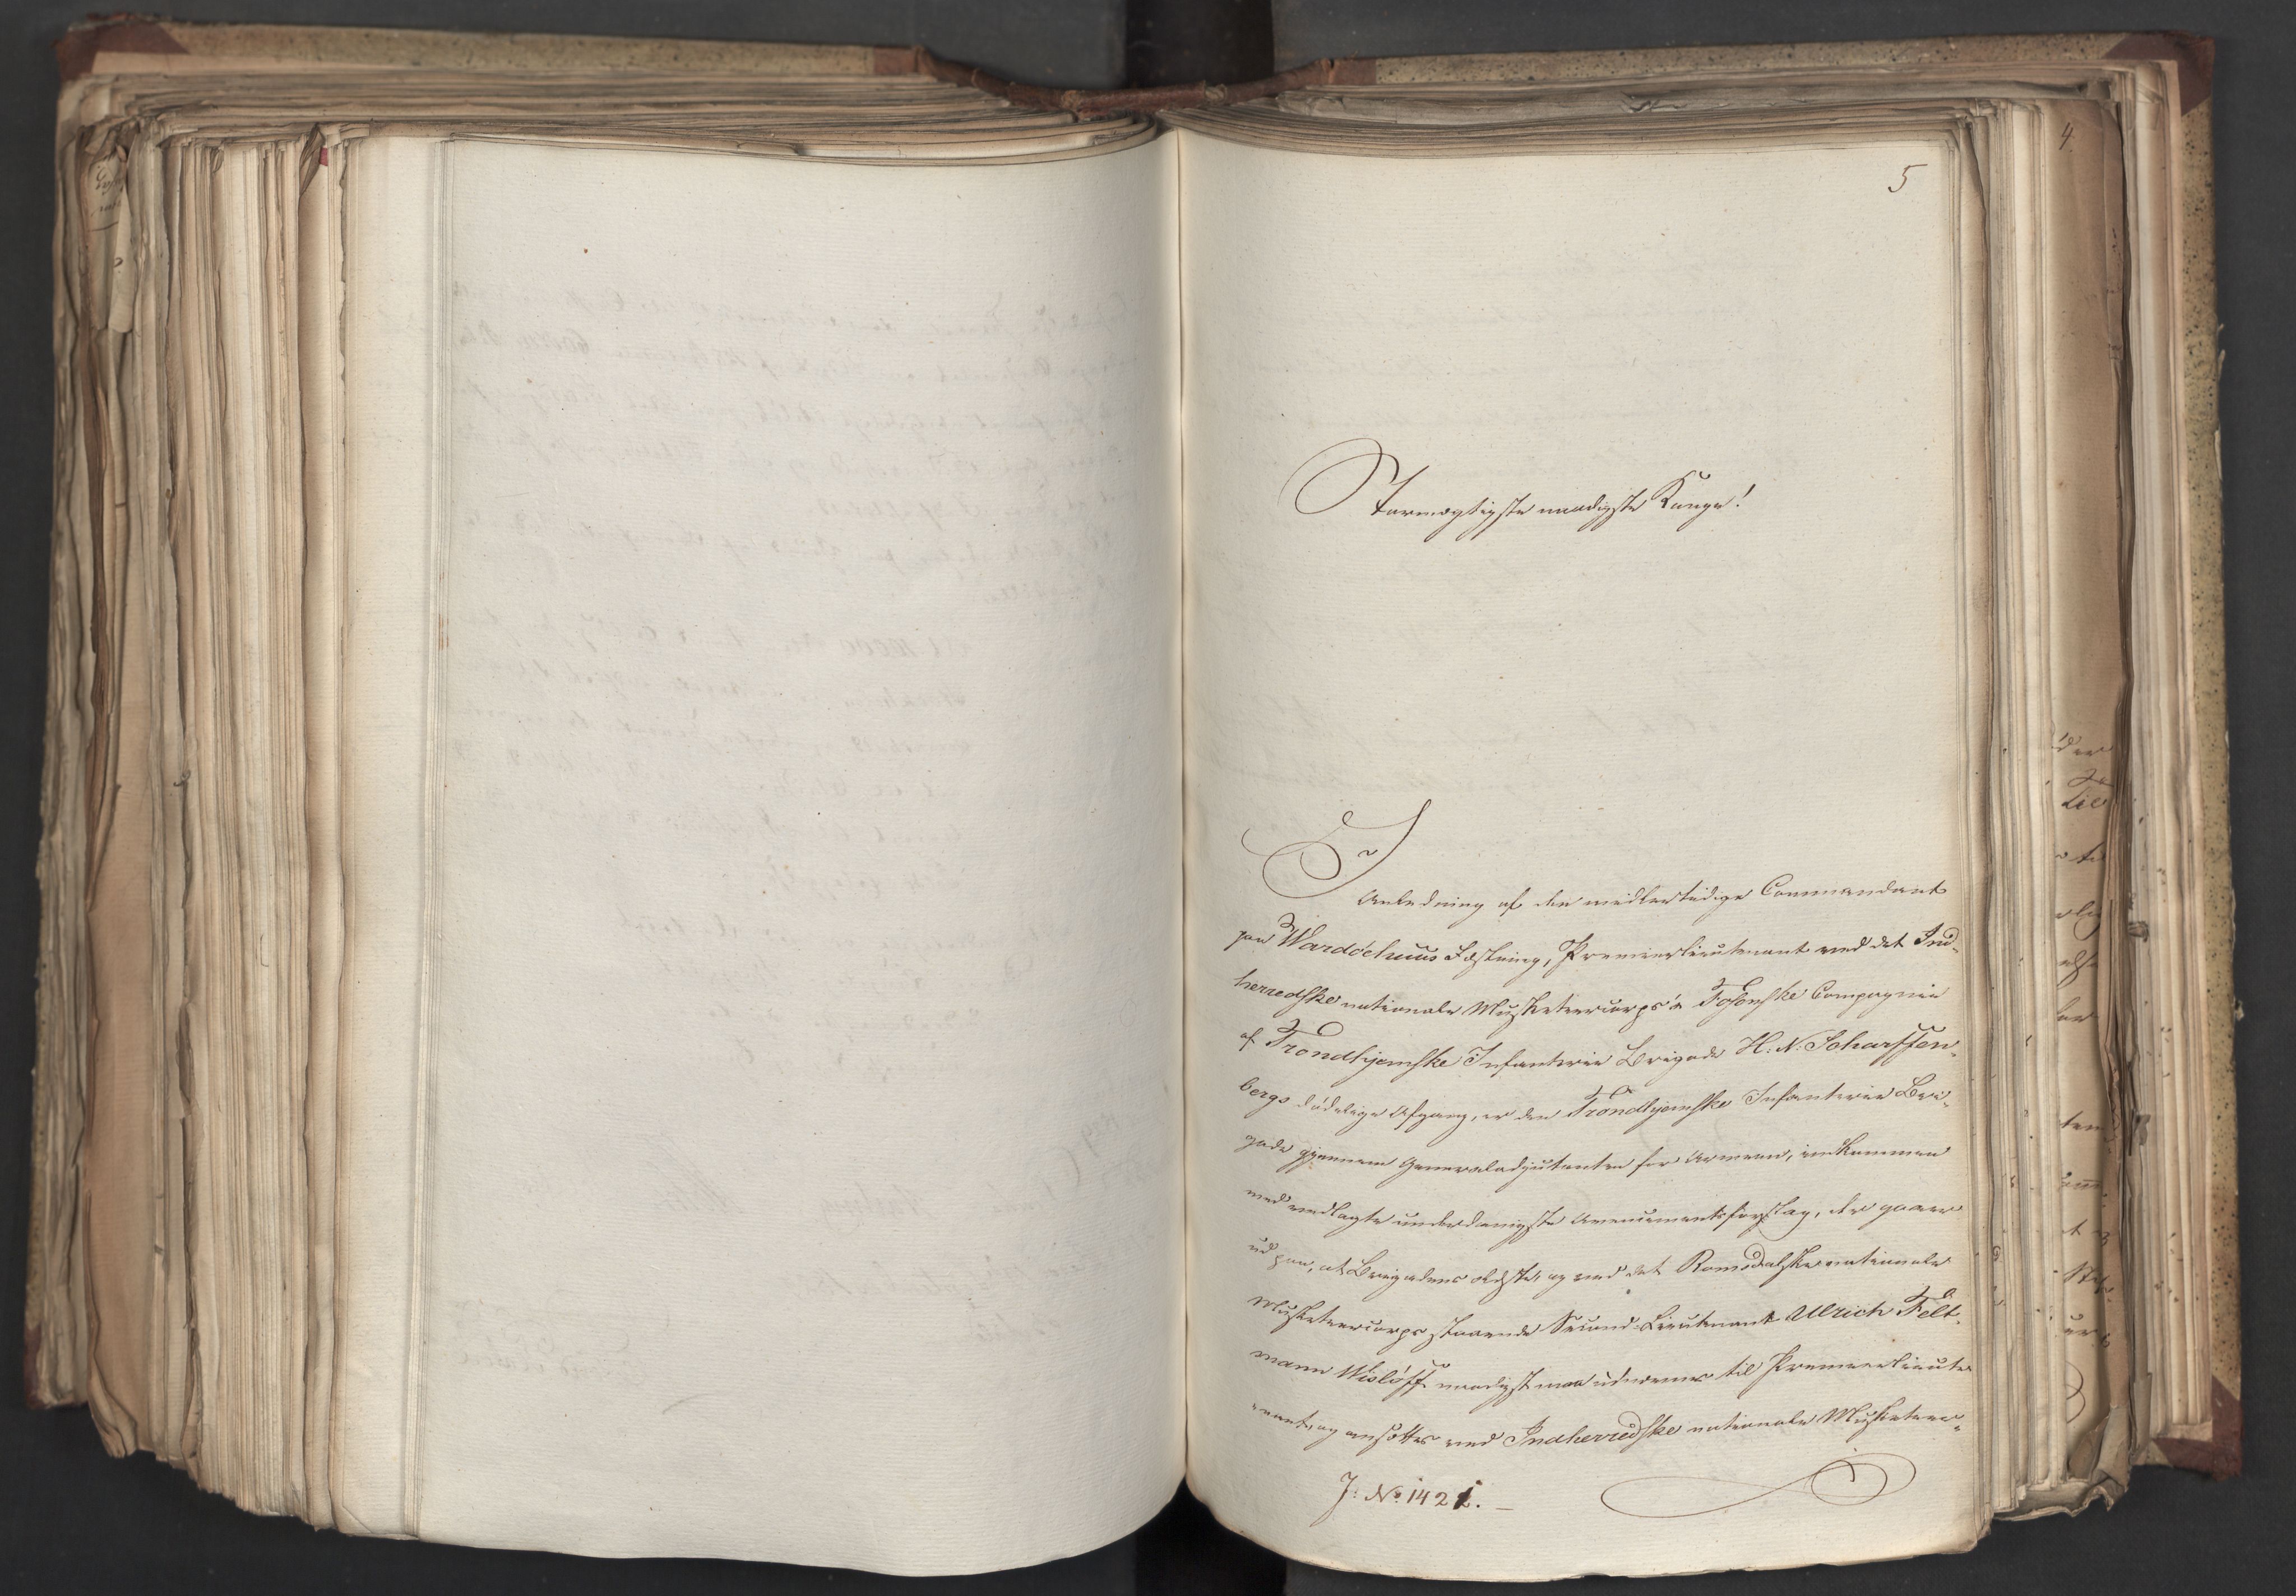 5
4.
Stormægtigste naadigste Konge!
I
Anledning af den midlertidige Commandant
paa Wardöehuus Fæstning, Premierlieutenant ved det Ind-
herredske nationale Musketeercorps's Fosenske Compagnie
af Trondhjemske Infanterie Brigade H: N: Scharffen-
bergs dödelige Afgang, er den Trondhjemske Infanterie Bri-
gade gjennem Generaladjutanten for Armeen, indkommen
med vedlagte underdanigste Avencementsforslag, der gaaer
ud paa, at Brigadens ældste, og ved det Romsdalske nationale
Musketeercorps staaende Second-Lieutenant Ulrich Felt-
mann Wislöff naadigst maa udnævnes til Premierlieute-
nant, og ansættes ved Indherredske nationale Musketeer-
J: No 1421.